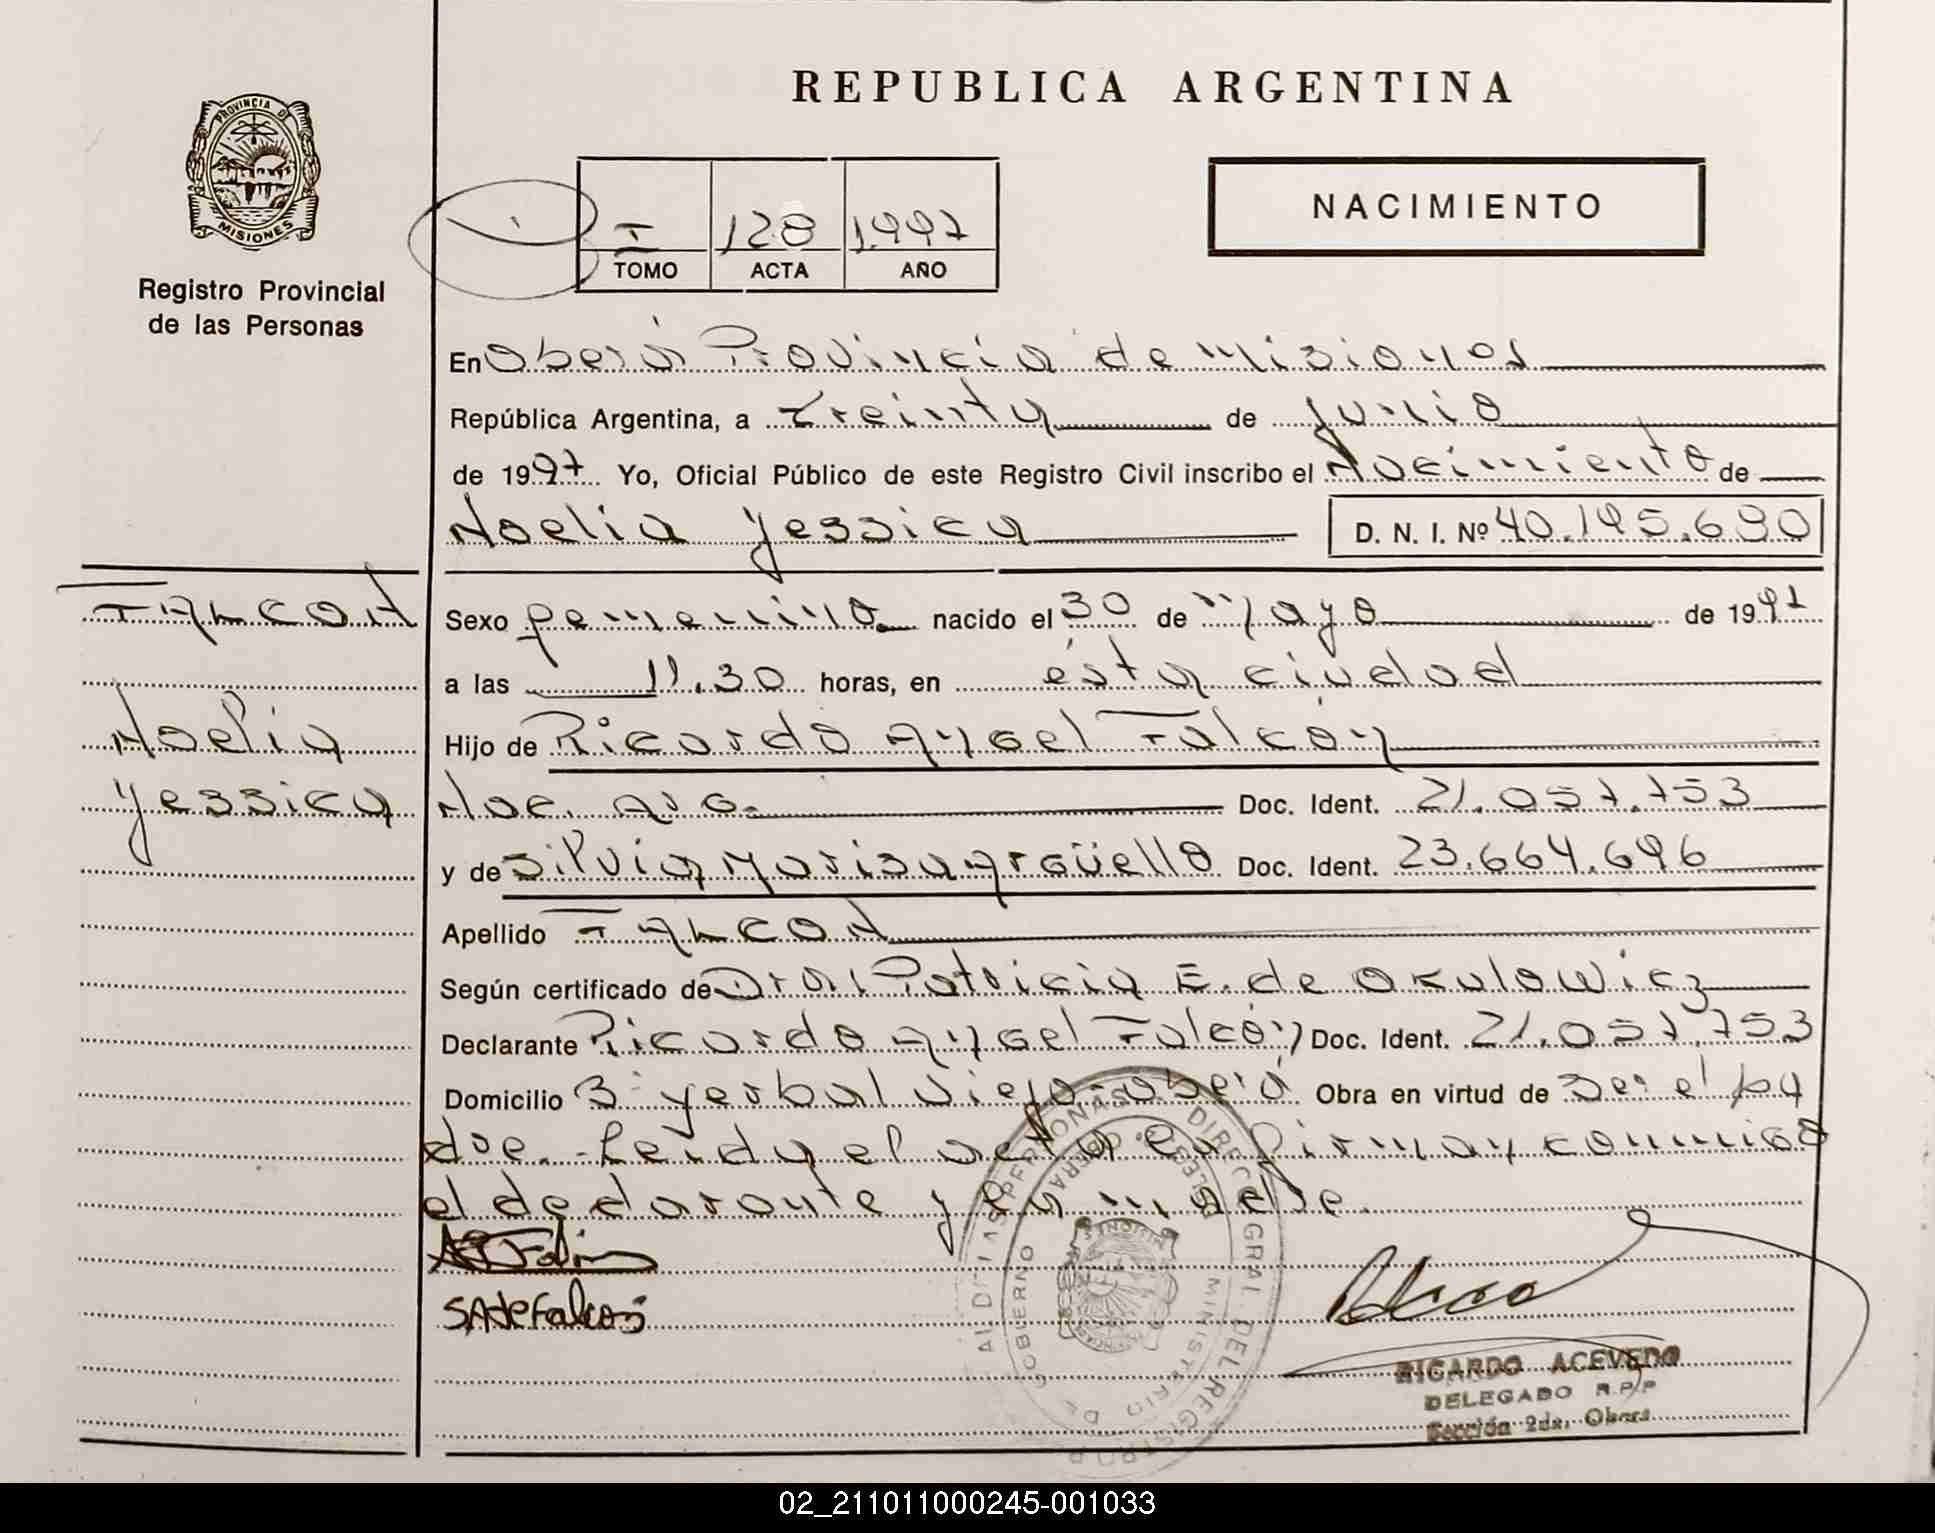 REPUBLICA ARGENTINA
PROVINCIA DE MISIONES
Registro Provincial
de las Personas
NACIMIENTO
I 128 1997
TOMO ACTA AÑO
En Oberá Provincia de Misiones
República Argentina, a treinta de junio
de 1997 Yo, Oficial Público de este Registro Civil inscribo el Nacimiento de
Noelia Yessica D. N. I. Nº 40.195.690
FALCON
Noelia
Yessica
Sexo femenino nacido el 30 de Mayo de 1997
a las 11.30 horas, en ésta ciudad
Hijo de Ricardo Angel Falcón
Nac. Arg. Doc. Ident. 21.057.753
y de Silvia Marisa Argüello Doc. Ident. 23.664.696
Apellido FALCON
Según certificado de Dra. Patricia E. de Okulowicz
Declarante Ricardo Angel Falcón Doc. Ident. 21.057.753
Domicilio Bº Yerbal Viejo-Oberá Obra en virtud de Ser el pa
dre. Leída el acta la firman conmigo
el declarante y la madre.
SAdeFalcon
DIRECC. GRAL. DEL REGISTRO P. DE LAS PERSONAS
MINISTERIO DE GOBIERNO
MISIONES
RICARDO ACEVEDO
DELEGADO R.P.P
Sección 2da. Obera
02_211011000245-001033